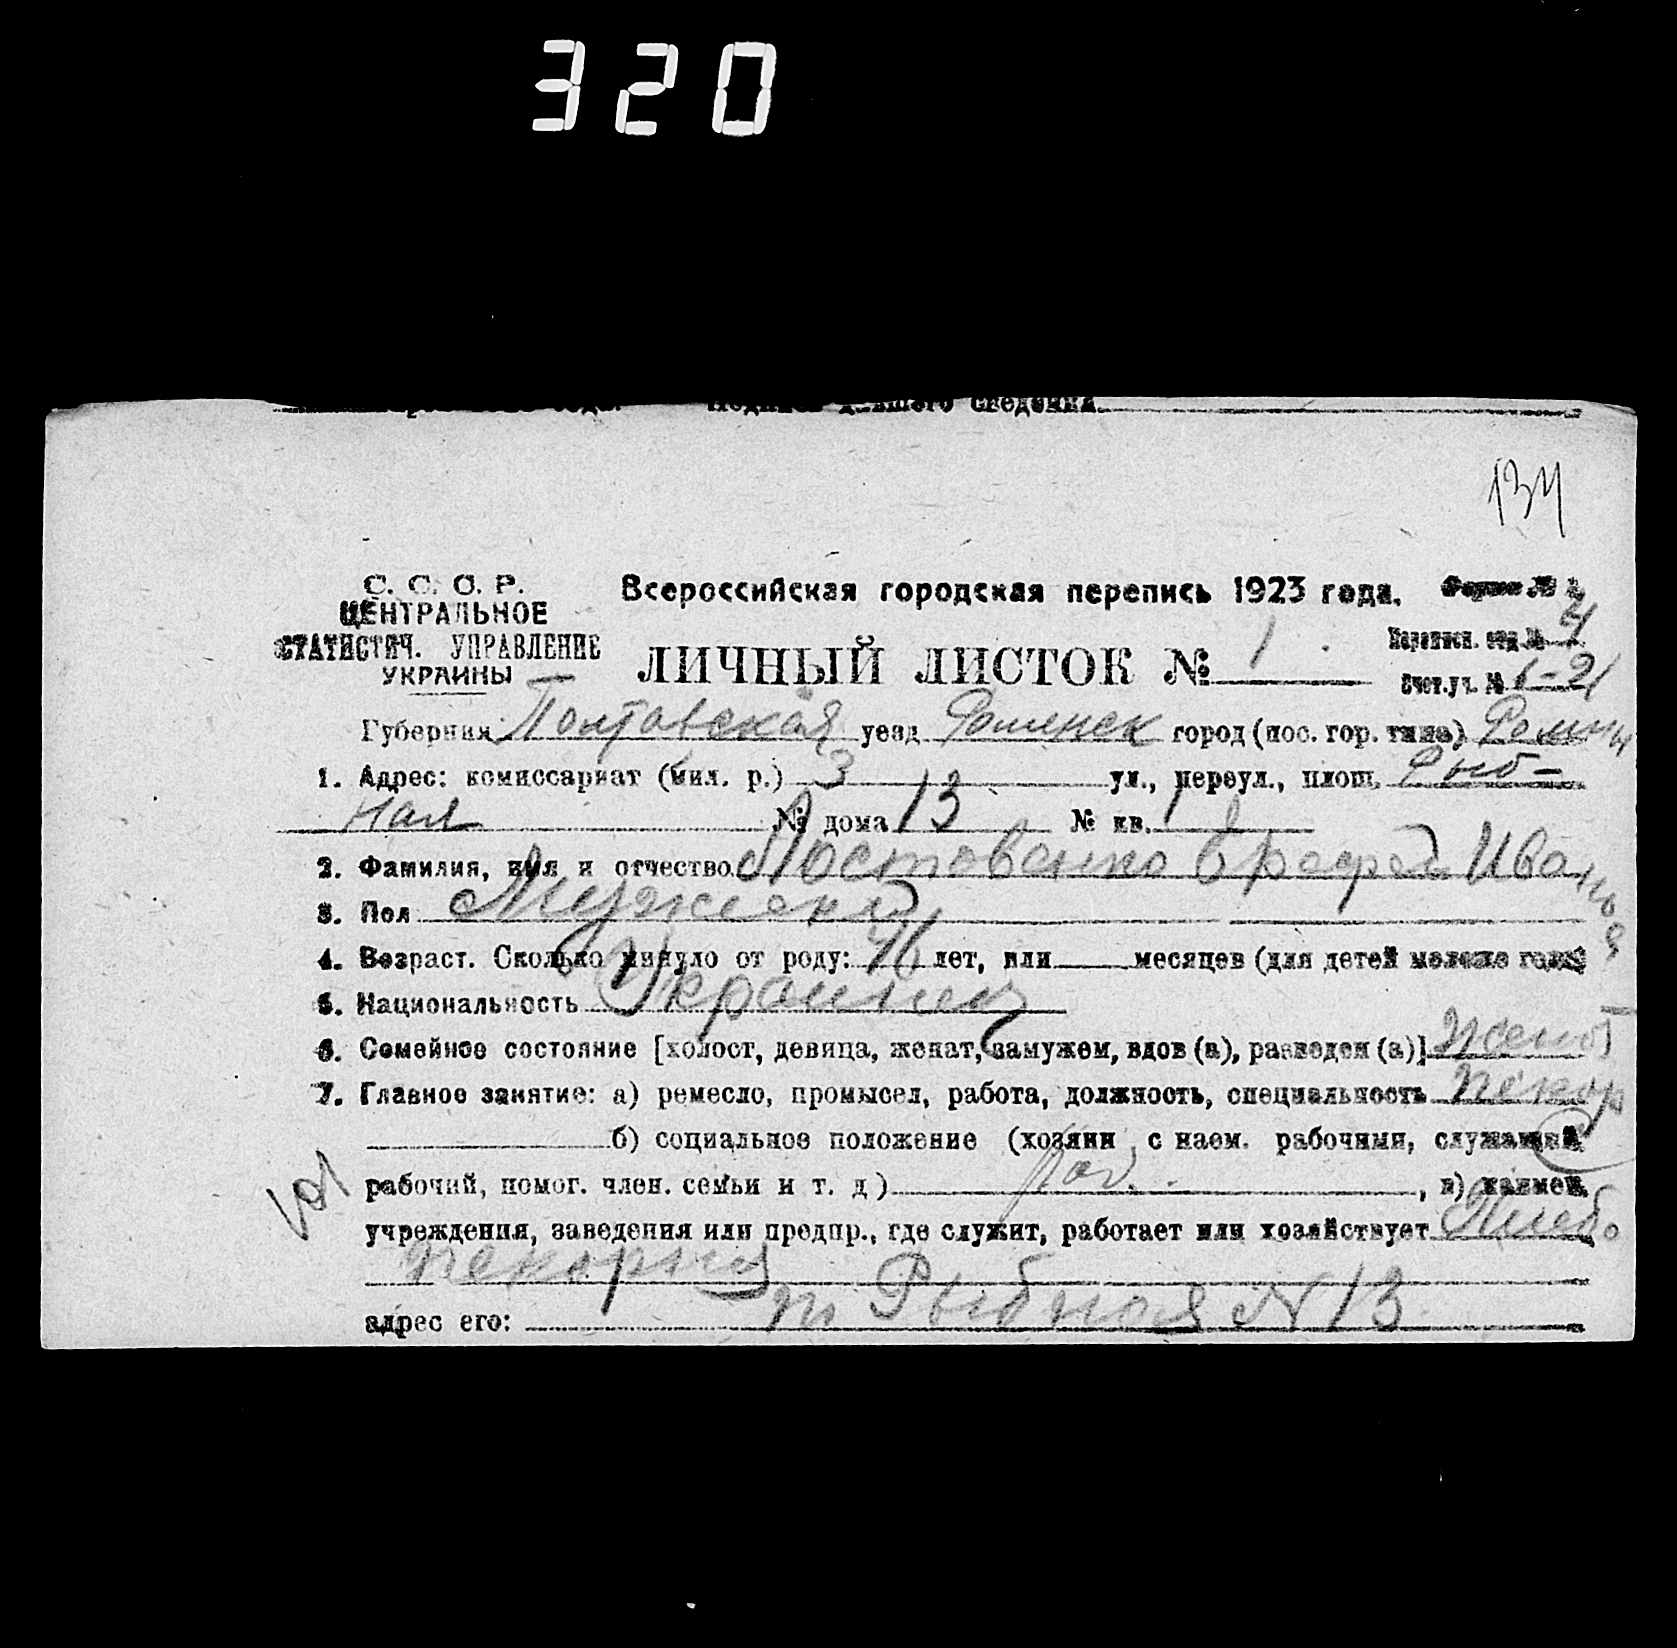 320
Подпись давшего сведения
134
С. С. С. Р.
ЦЕНТРАЛЬНОЕ
СТАТИСТИЧ. УПРАВЛЕНИЕ
УКРАИНЫ
Всероссийская городская перепись 1923 года.
Форма №
ЛИЧНЫЙ ЛИСТОК № 1
Переписн. отд. № 4
Счет. уч. №
Губерния Полтавская уезд Роменск город (пос. гор. типа) Ромны
1. Адрес: комиссариат (мил. р.) 3 ул., переул., площ. Рыб-
ная № дома 13 № кв. 1
2. Фамилия, имя и отчество Мостовенко Ерофей Иванов
3. Пол Мужской
4. Возраст. Сколько минуло от роду: 46 лет, или месяцев (для детей моложе года)
5. Национальность Украинец
6. Семейное состояние [холост, девица, женат, замужем, вдов (а), разведен (а)] женат
7. Главное занятие: а) ремесло, промысел, работа, должность, специальность пекар
б) социальное положение (хозяин с наем. рабочими, служащий
рабочий, помог. член. семьи и т. д) раб. , в) наимен.
учреждения, заведения или предпр., где служит, работает или хозяйствует Хлебо
пекарня
адрес его: Рыбная N 13